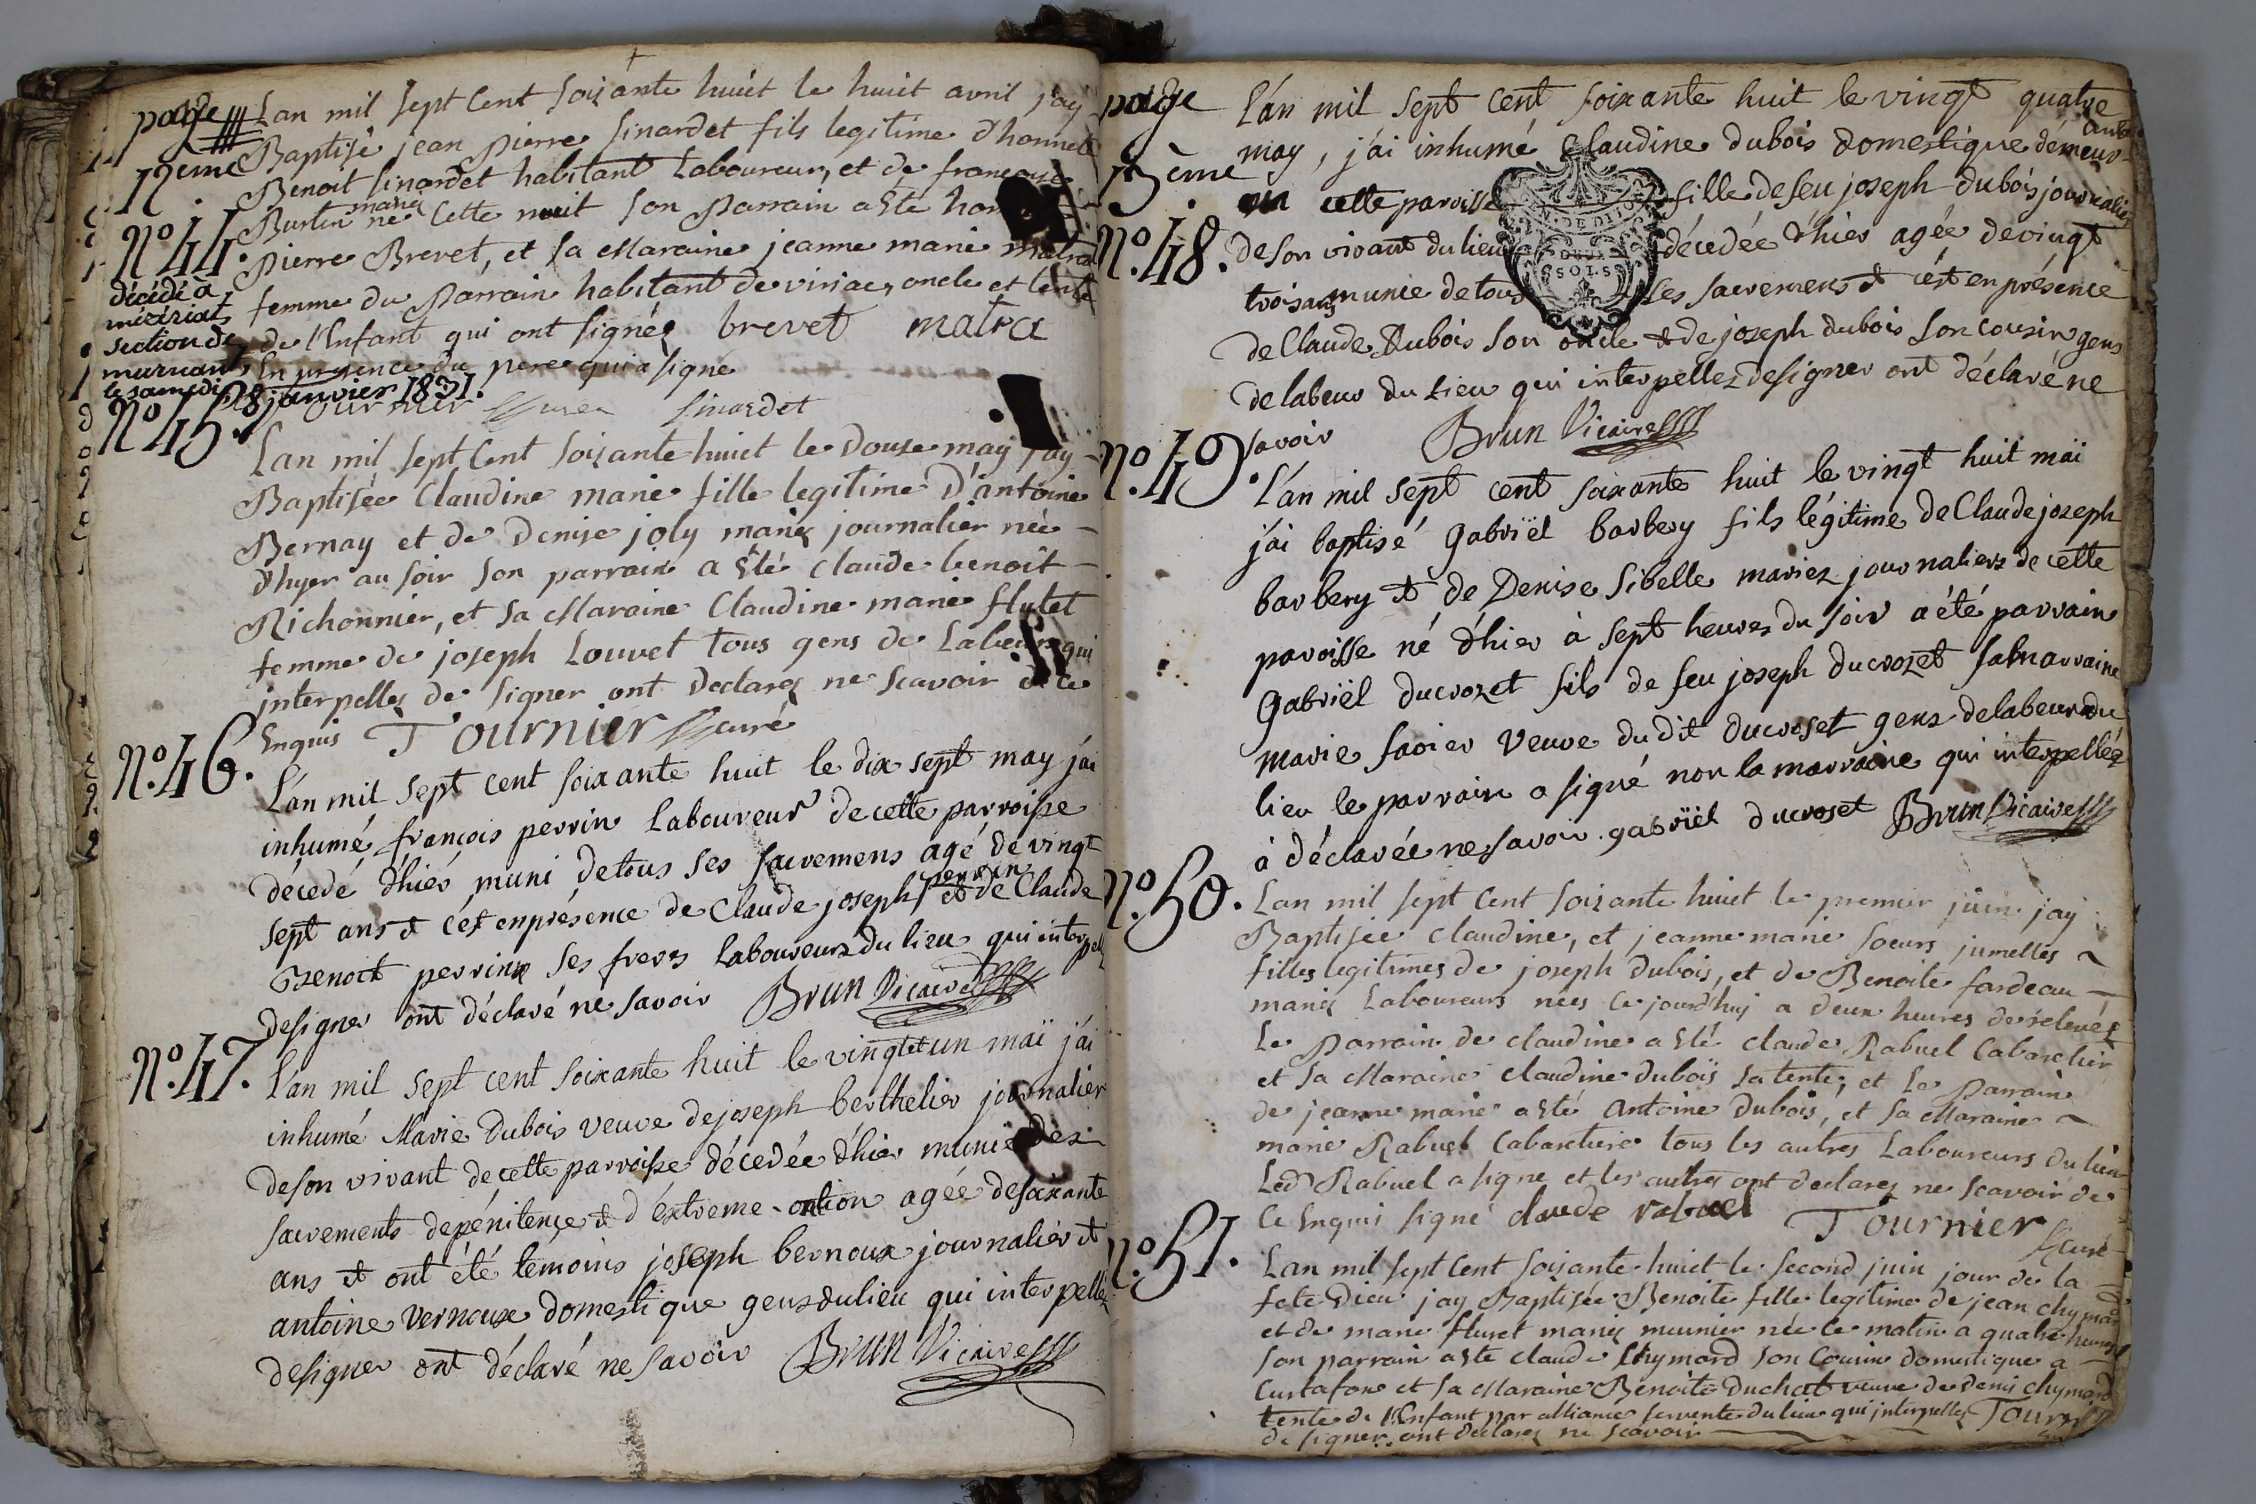 page
12eme
Lan mil sept Cent soixante huict le huit avril j'ay
Baptisé jean Pierre sinardet fils legitime d'honnete
Benoit sinardet habitant Laboureur, et de françoise
Burtin mariez né Cette nuit son Parrain a Eté
Pierre Brevet, et sa Maraine jeanne marie
femme du Parrain habitant de viriac, oncle et tente
de l'Enfant qui ont signéz brevet matra
En presence du pere qui a signé
sinardet
N°.44.
décédé à
mizériat
section de
le samedi 28 janvier 1831.
N°45.
Lan mil sept Cent soixante huict le Douze may j'ay
Baptisée Claudine marie fille legitime D'antoine
Bernay et de Denise joly mariez journalier née
d'hyer au soir son parrain a Eté claude benoit
Richonnier, et sa Maraine Claudine marie flutet
femme de joseph Louvet tous gens de Labeur qui
interpellez de signer ont Declarez ne scavoir de ce
Enquis Tournier curé
N°.46.
L'an mil sept cent soixante huit le dix sept may j'ai
inhumé françois perrin laboureur de cette parroisse
décedé d'hiér muni de tous ses sacremens agé de vingt
sept ans & c'est en présence de Claude joseph perrin & de Claude
Benoit perrin ses freres laboureurs du lieu qui interpelléz
de signer ont déclaré ne savoir Brun Vicaire
N°.47.
L'an mil sept cent soixante huit le vingtetun maï j'ai
inhumé Marie Dubois veuve de joseph berthelier journalier
de son vivant de cette parroisse décedée d'hier munie des
sacrements de pénitence & d'extreme-onction agée de soixante
ans & ont été temoins joseph bernoux journalier &
antoine vernoux domestique gens du lieu qui interpellez
de signer ont déclaré ne savoir Brun Vicaire
page
13ème
N°.48.
L'an mil sept cent soixante huit le vingt quatre
may, j'ai inhumé Claudine dubois domestique démeurante
en cette paroisse fille de feu joseph dubois journalier
de son vivant du lieu décedée d'hier agée de vingt
trois ans munie de tous les sacremens & c'est en présence
de Claude Dubois son oncle & de joseph dubois son cousin gens
de labeur du lieu qui interpellez de signer ont déclaré ne
savoir Brun Vicaire
DEUX
SOLS
N°.49.
L'an mil sept cent soixante huit le vingt huit maï
j'ai baptisé Gabriël barbery fils légitime de Claude joseph
barbery & de Denise Sibelle mariez journaliers de cette
paroisse né d'hier à sept heures du soir a été parrain
Gabriël ducrozet fils de feu joseph ducrozet sa marraine
marie favier veuve dudit ducroset gens de labeur du
lieu le parrain a signé non la marraine qui interpellée
à déclarée ne savoir. gabriël ducroset Brun Vicaire
N°.50.
Lan mil sept Cent soixante huict le premier juin jay
Baptisée claudine, et jeanne marie soeurs jumelles
filles legitimes de joseph dubois, et de Benoite fardeau
mariez Laboureurs nées ce jourd'huy a deux heures de relevée
Le Parrain de claudine a Eté claude Rabuel Cabaretier
et sa Maraine claudine dubois sa tente, et Le Parrain
de jeanne marie a Eté antoine dubois, et sa Maraine
marie Rabuel Cabaretiere tous les autres Laboureurs du lieu
Led Rabuel a signe et les autres ont declarez ne scavoir de
ce Enquis signé claude rabuel Tournier curé
N°.51.
Lan mil sept Cent soixante huict le second juin jour de la
fete Dieu jay Baptisée Benoite fille legitime de jean chymard
et de marie fluret mariez meunier née ce matin a quatre heures
son parrain a Ete claude chymard son Cousin domestique a
Curtafon et sa Maraine Benoite Duchat veuve de denis chymard
tente de l'Enfant par alliance servente du lieu qui interpellez
de signer ont declarez ne scavoir